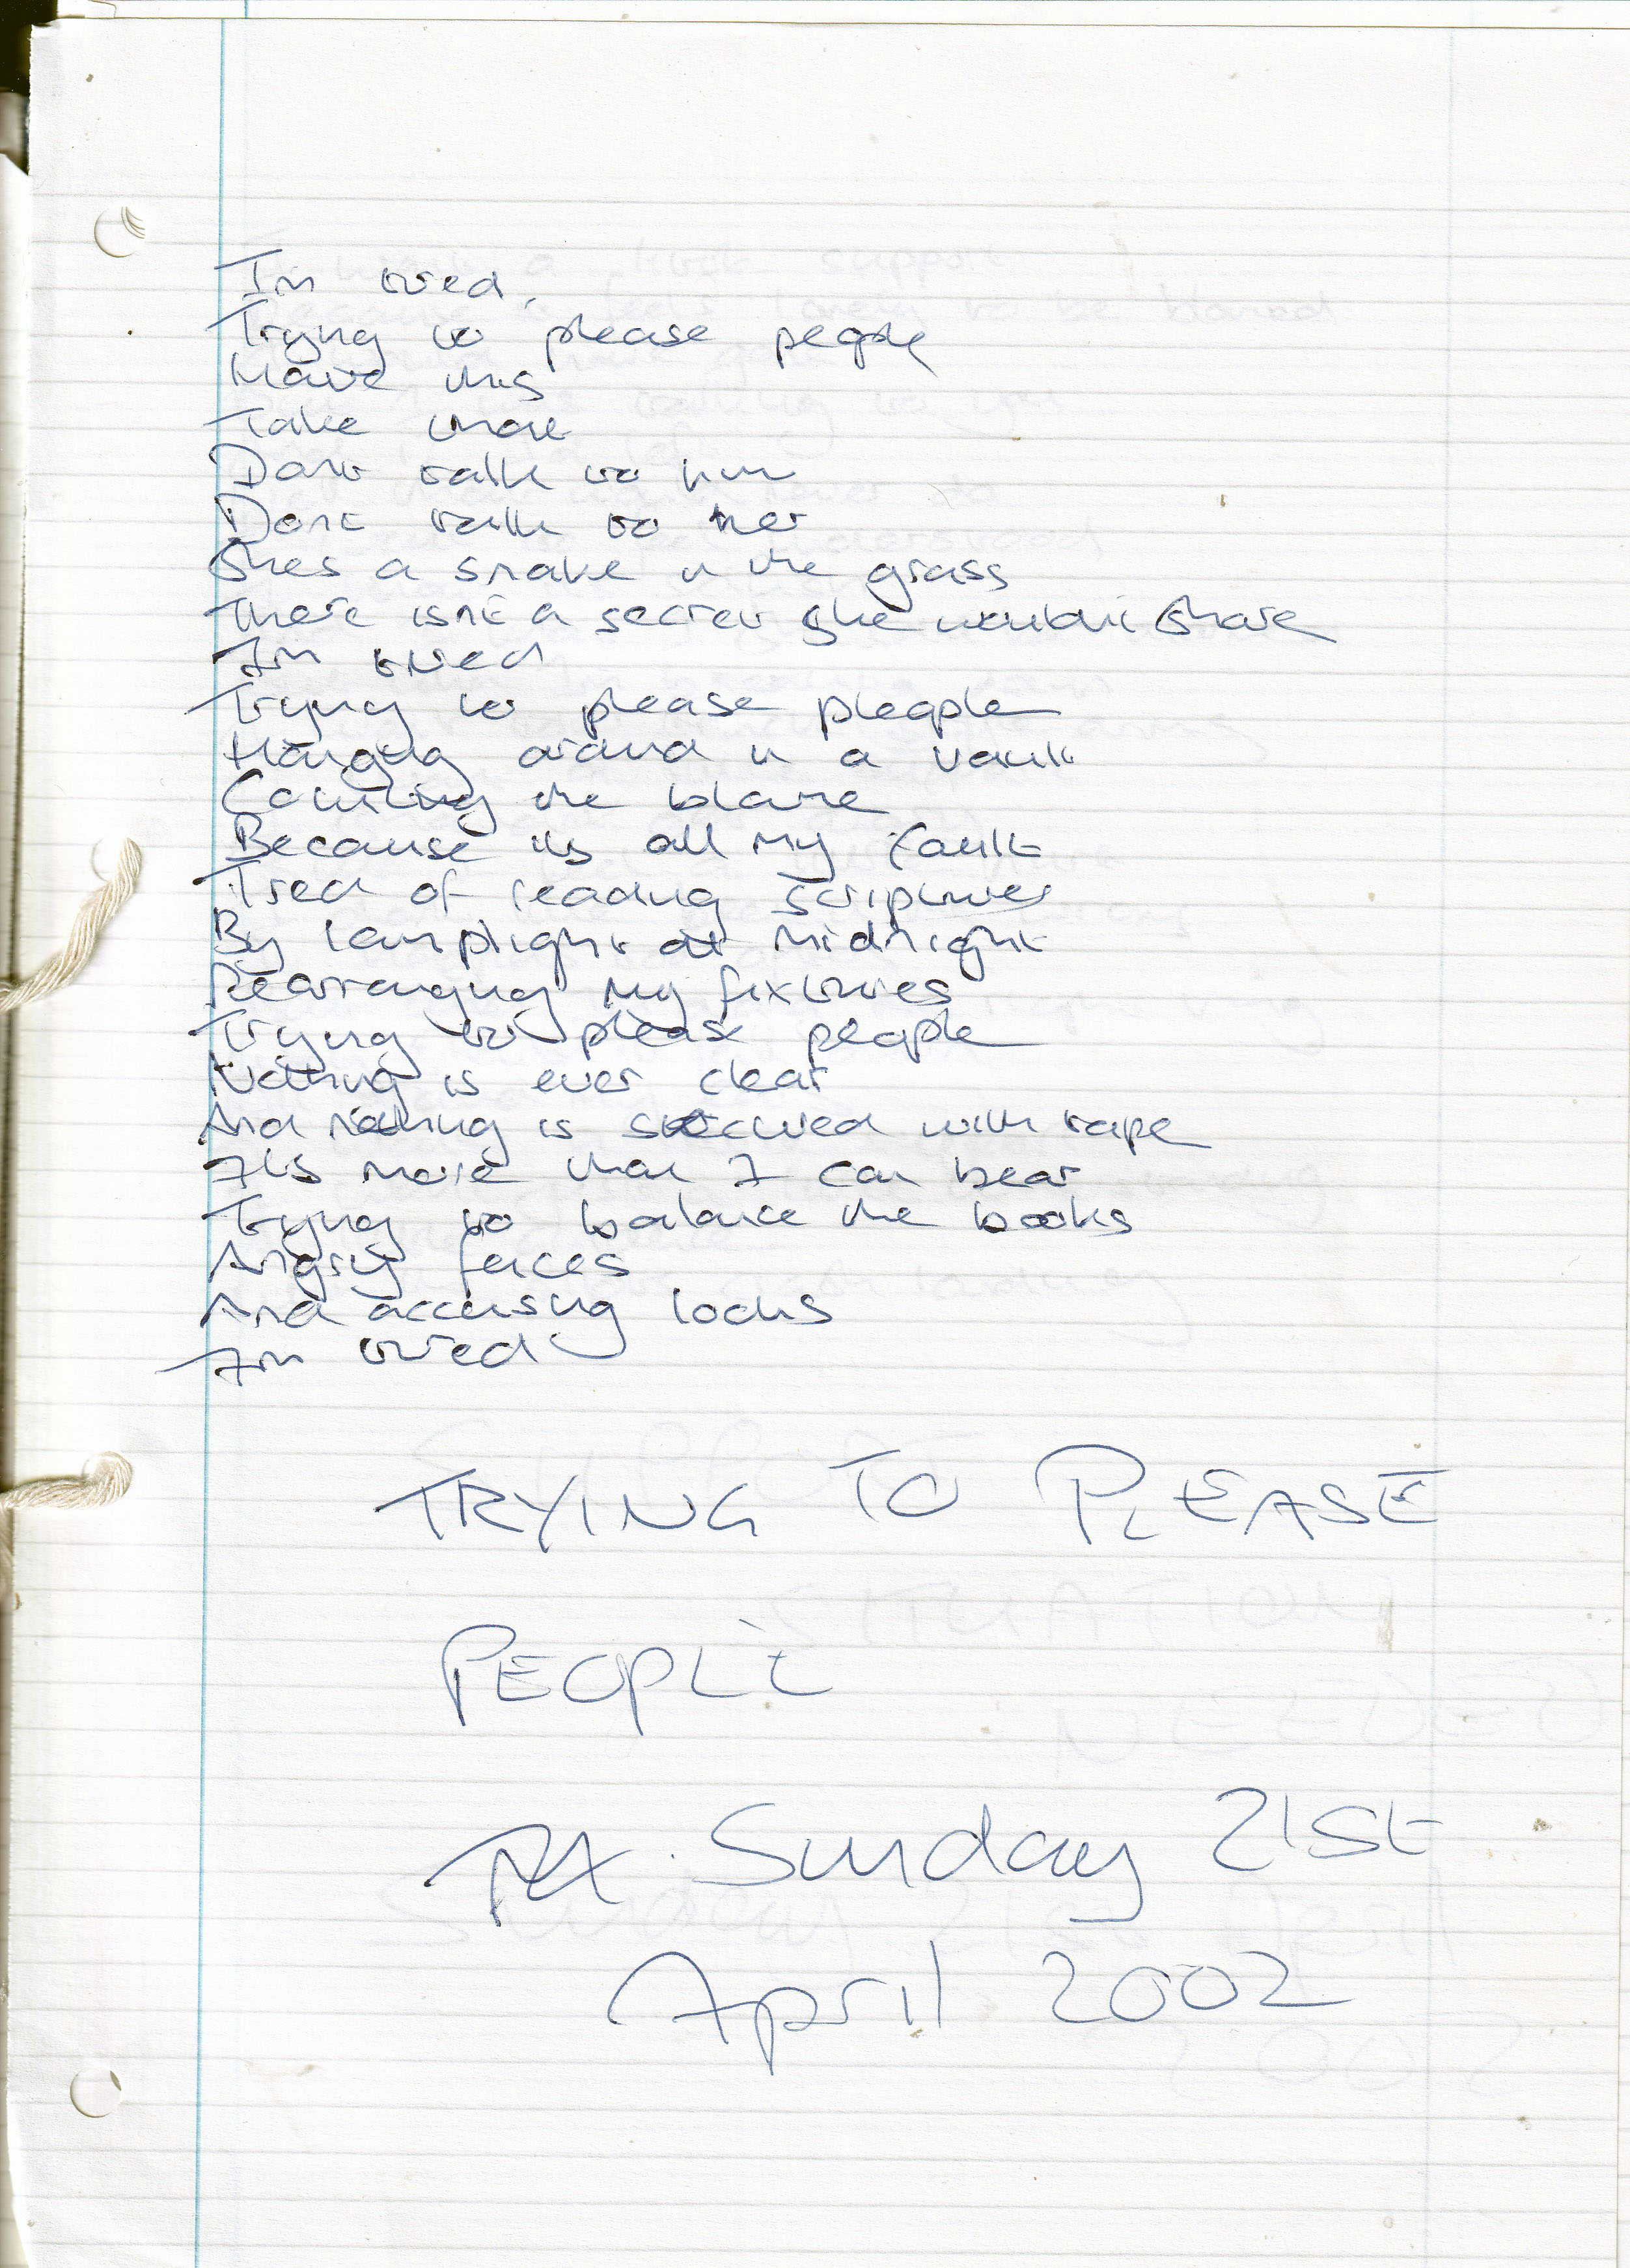 Im tired,
Trying to please people
Have this
Take that
Dont talk to him
Dont talk to her
Shes a snake in the grass
There isnt a secret she wouldnt share
Im tired
Trying to please pleople
Hanging around in a vault
Counting the blame
Because its all my fault
Tired of reading scriptures
By lamplight at midnight
Rearranging my fixtures
Trying to please people
Nothing is ever clear
And nothing is secured with tape
Its more than I can bear
Trying to balance the books
Angry faces
And accusing looks
Im tired
TRYING TO PLEASE
PEOPLE
Sunday 21st
April 2002